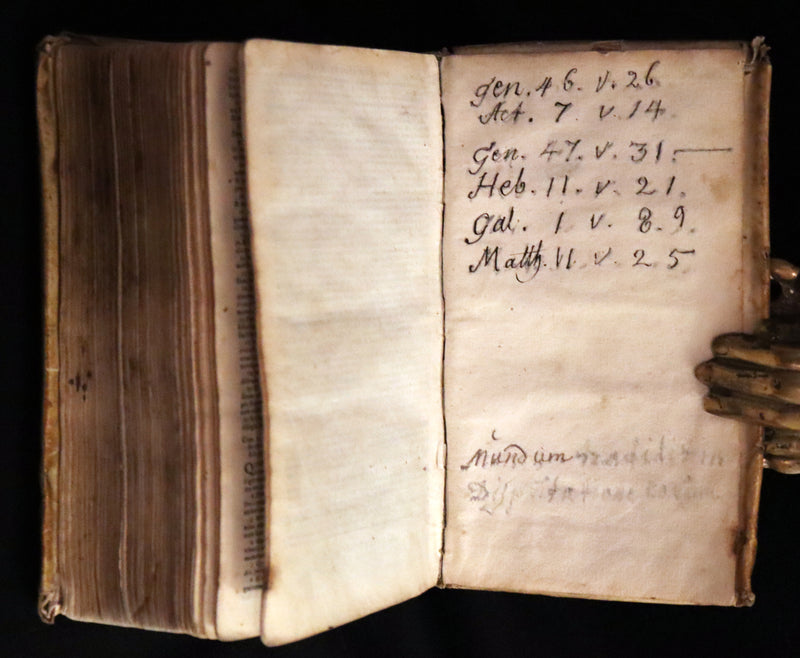 Gen. 46. v. 26
Act. 7 v. 14.
Gen. 47. v. 31.
Heb. 11. v. 21.
Gal. 1 v. 8. 9.
Matth. 11. v. 25
Mundum tradidit
Disputationi